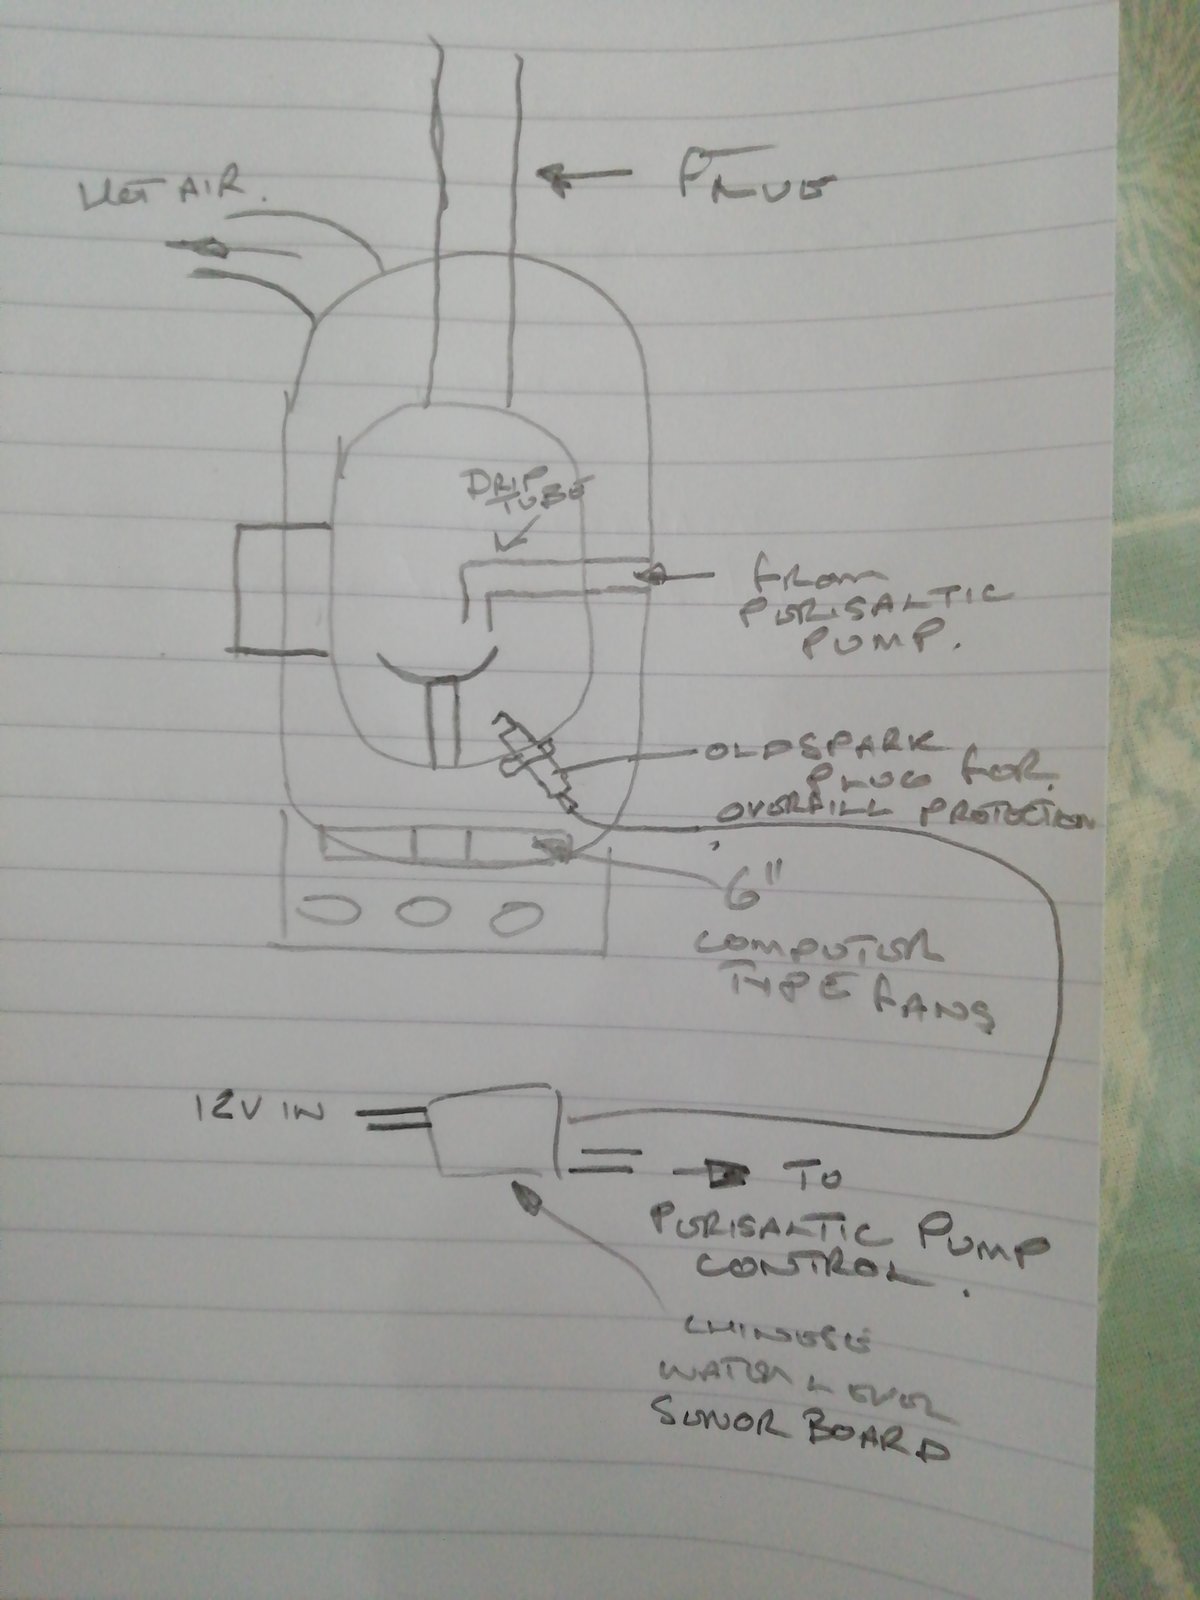 FLUE
HOT AIR.
DRIP
TUBE
FROM
PURISALTIC
PUMP.
OLD SPARK
PLUG FOR
OVERFILL PROTECTION
6"
COMPUTOR
TYPE FANS
12V IN
TO
PURISALTIC PUMP
CONTROL.
CHINESE
WATER LEVEL
SENOR BOARD